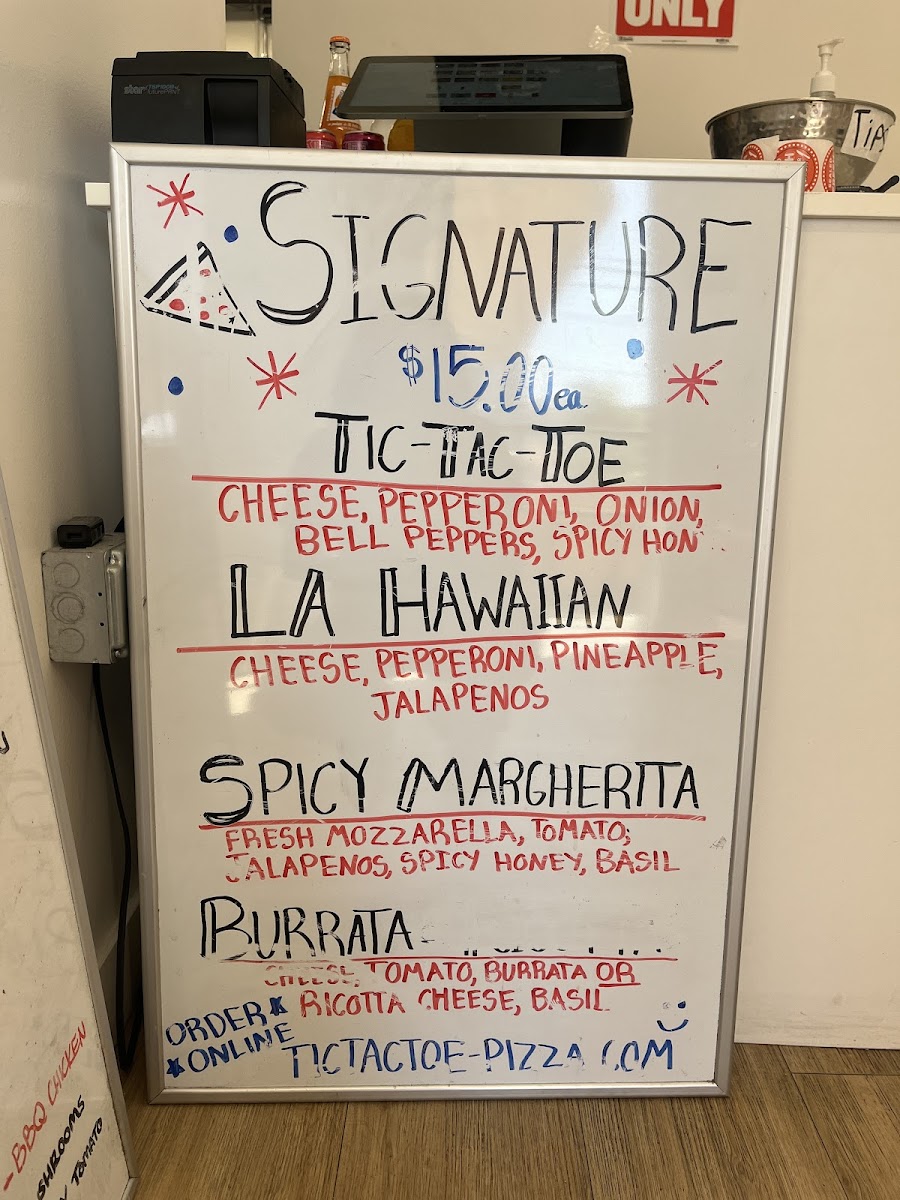 ONLY
star
TIPS
SIGNATURE
$15.00 ea.
TIC-TAC-TOE
CHEESE, PEPPERONI, ONION,
BELL PEPPERS, SPICY HON
LA HAWAIIAN
CHEESE, PEPPERONI, PINEAPPLE,
JALAPENOS
SPICY MARGHERITA
FRESH MOZZARELLA, TOMATO,
JALAPENOS, SPICY HONEY, BASIL
BURRATA-
CHEESE, TOMATO, BURRATA OR
RICOTTA CHEESE, BASIL
ORDER
ONLINE
TICTACTOE-PIZZA.COM
- BBQ CHICKEN
SHROOMS
TOMATO